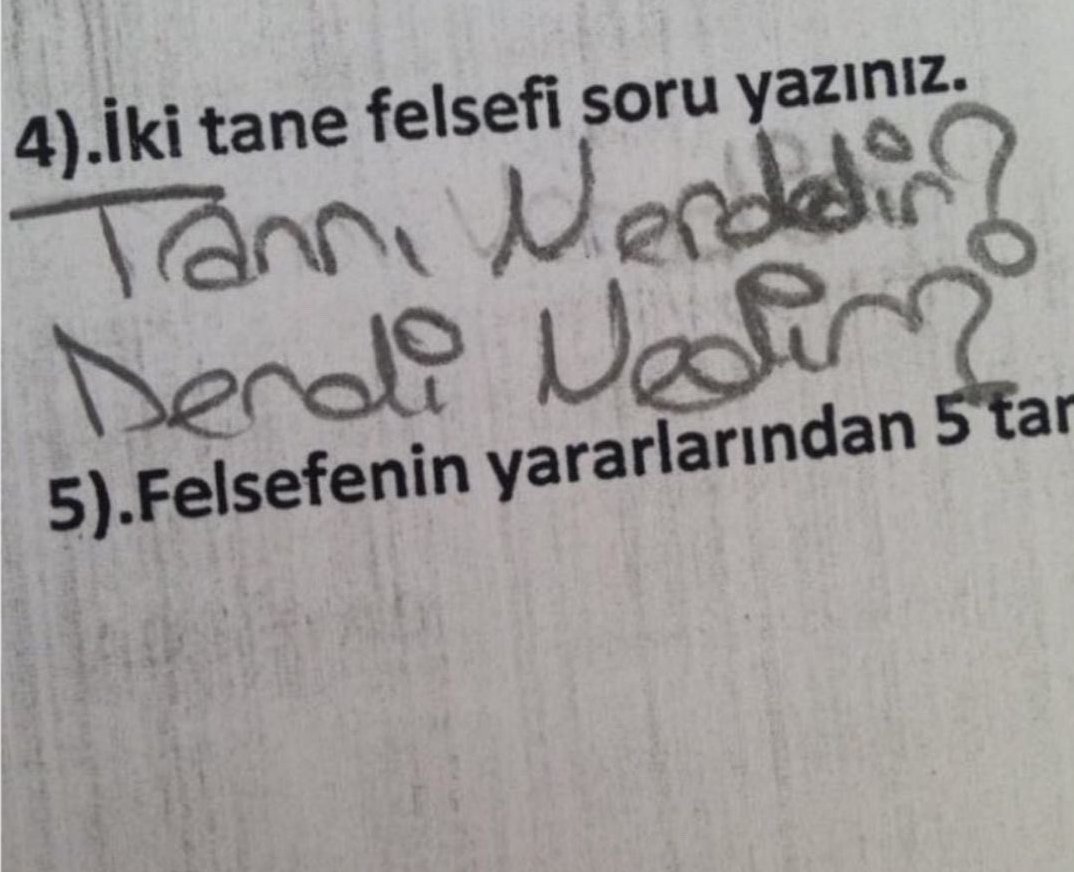 4).İki tane felsefi soru yazınız.
Tanrı Nerdedir?
Derdi Nedir?
5).Felsefenin yararlarından 5 tan